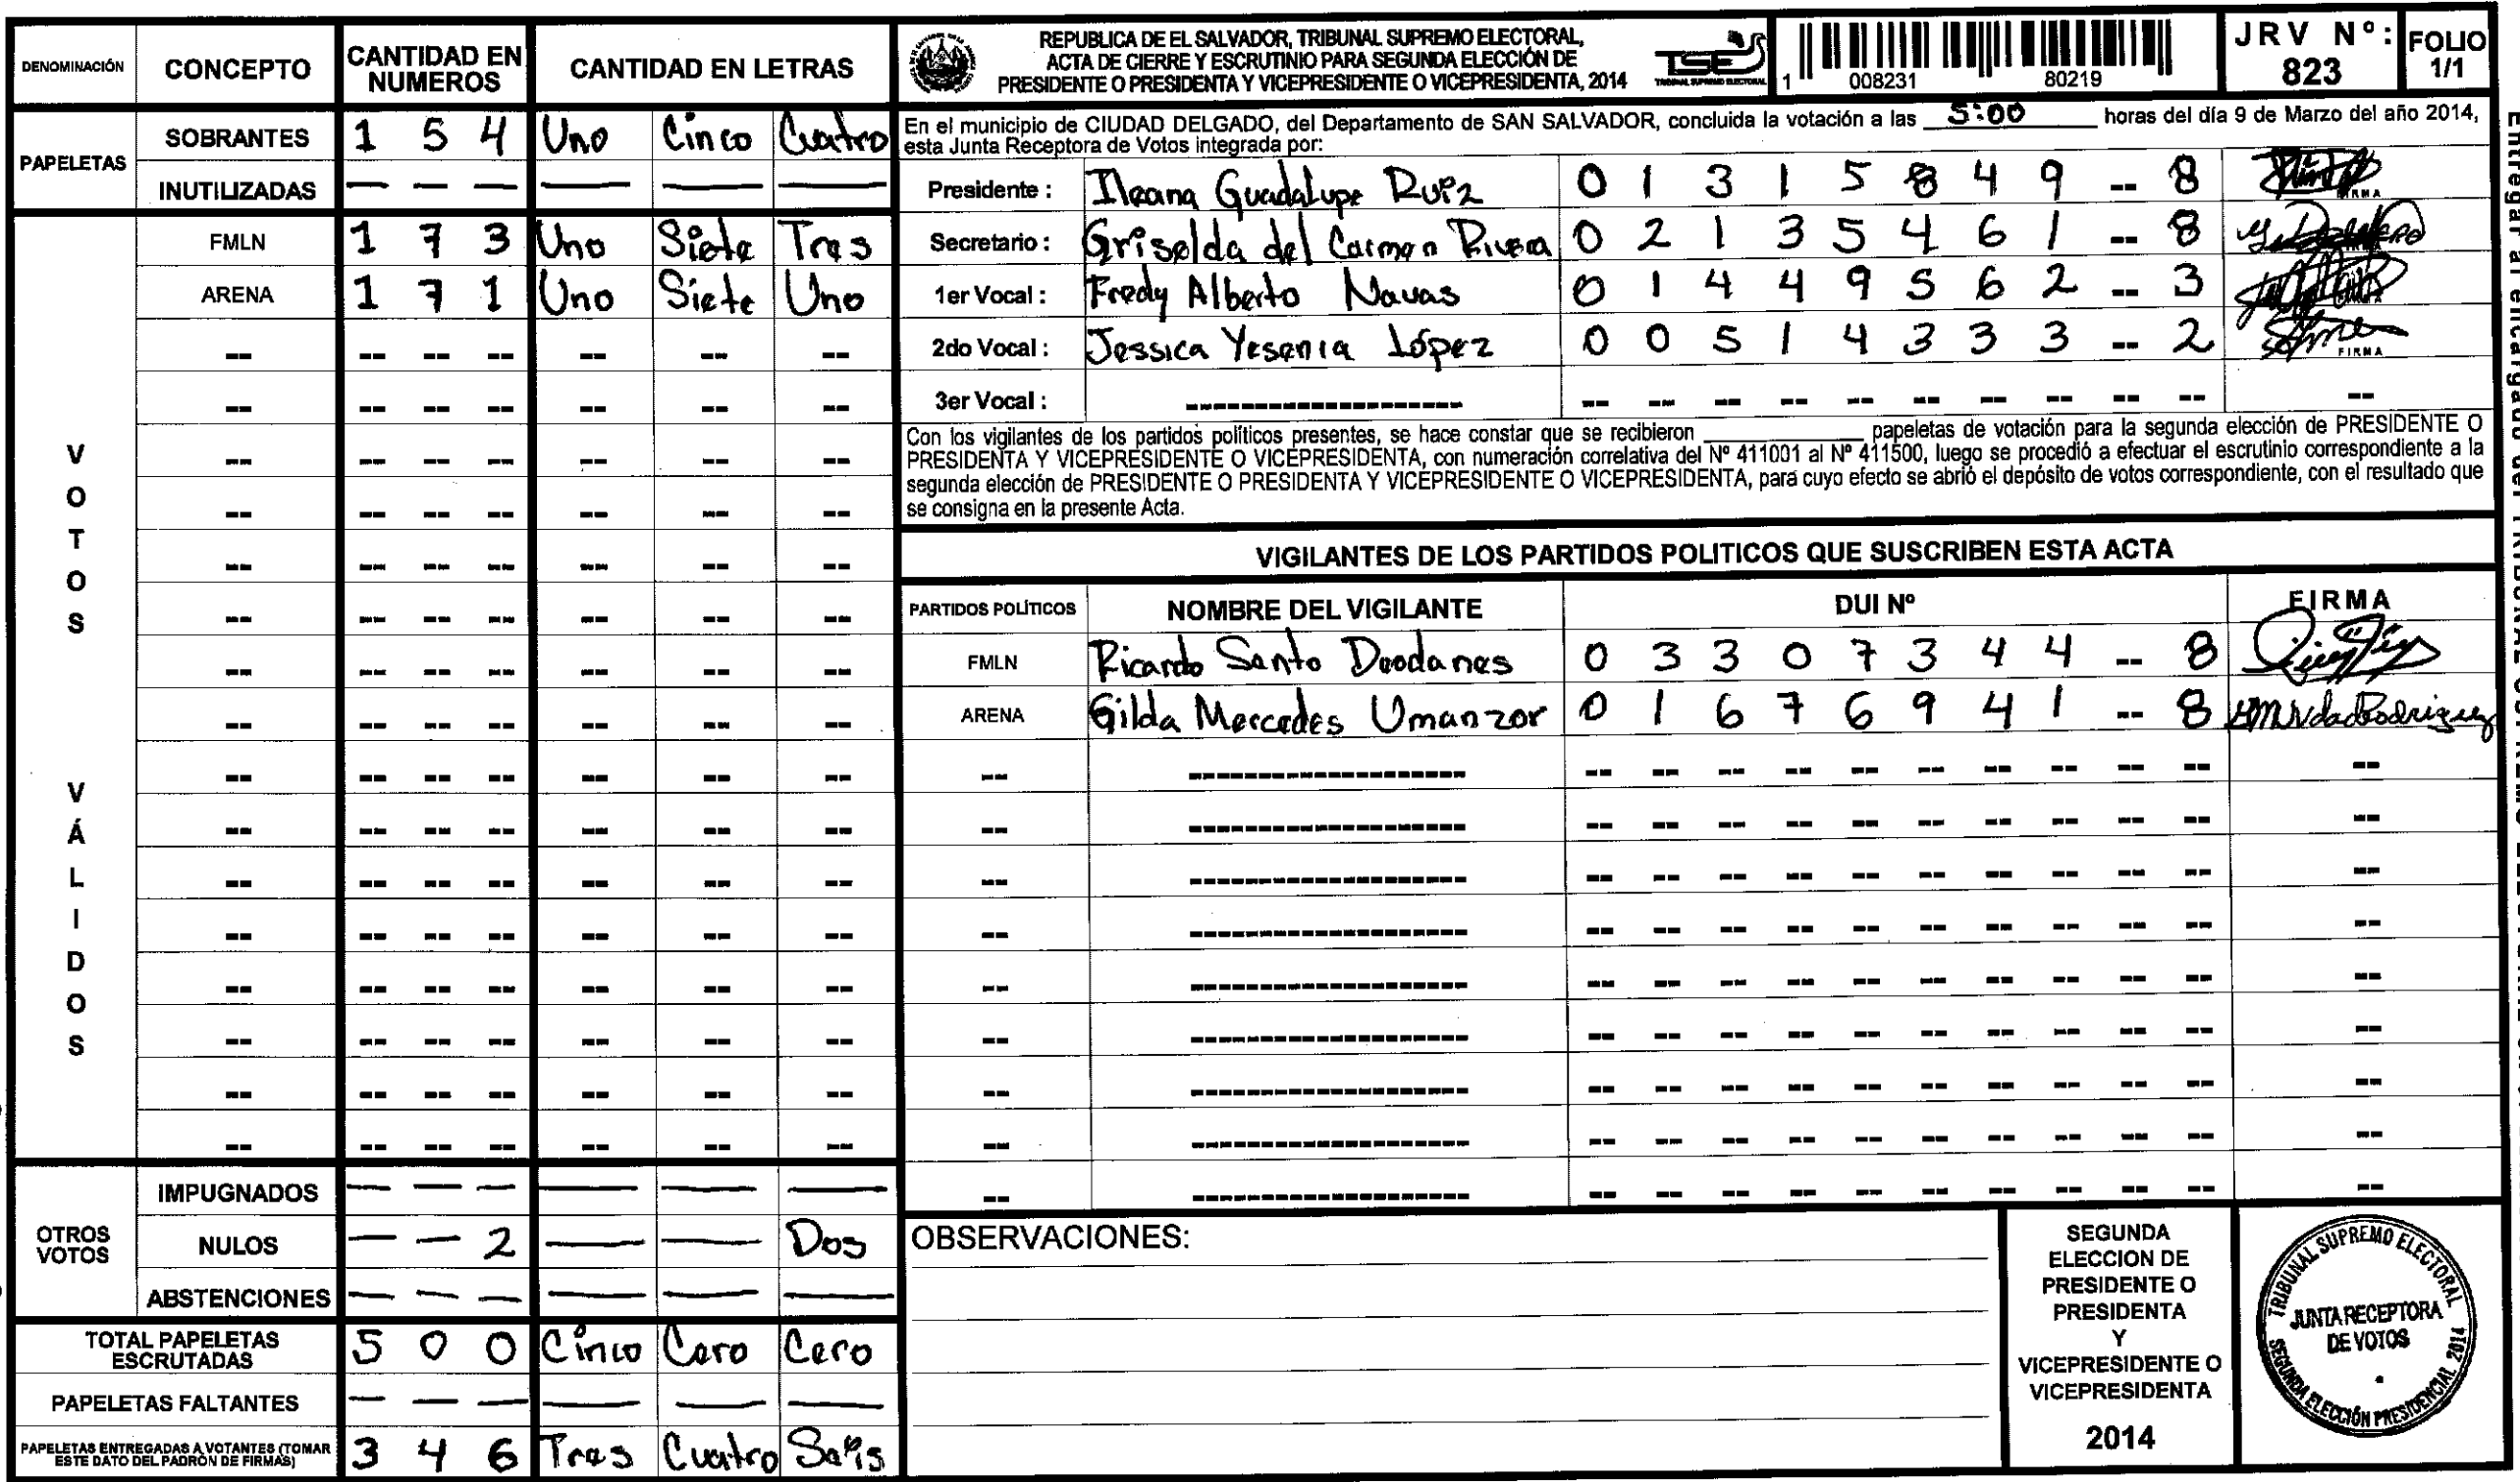 DENOMINACIÓN CONCEPTO CANTIDAD EN NUMEROS CANTIDAD EN LETRAS
PAPELETAS
SOBRANTES 1 5 4 Uno Cinco Cuatro
INUTILIZADAS — — — — — —
VOTOS VÁLIDOS
FMLN 1 7 3 Uno Siete Tres
ARENA 1 7 1 Uno Siete Uno
OTROS VOTOS
IMPUGNADOS — — — — — —
NULOS — — 2 — — Dos
ABSTENCIONES — — — — — —
TOTAL PAPELETAS ESCRUTADAS 5 0 0 Cinco Cero Cero
PAPELETAS FALTANTES — — — — — —
PAPELETAS ENTREGADAS A VOTANTES (TOMAR ESTE DATO DEL PADRÓN DE FIRMAS) 3 4 6 Tres Cuatro Seis
REPUBLICA DE EL SALVADOR, TRIBUNAL SUPREMO ELECTORAL,
ACTA DE CIERRE Y ESCRUTINIO PARA SEGUNDA ELECCIÓN DE
PRESIDENTE O PRESIDENTA Y VICEPRESIDENTE O VICEPRESIDENTA, 2014
TSE
TRIBUNAL SUPREMO ELECTORAL
1 008231 80219
JRV Nº: 823
FOLIO 1/1
En el municipio de CIUDAD DELGADO, del Departamento de SAN SALVADOR, concluida la votación a las 5:00 horas del día 9 de Marzo del año 2014,
esta Junta Receptora de Votos integrada por:
Presidente : Ileana Guadalupe Ruiz 0 1 3 1 5 8 4 9 -- 8 FIRMA
Secretario : Griselda del Carmen Rivera 0 2 1 3 5 4 6 1 -- 8
1er Vocal : Fredy Alberto Navas 0 1 4 4 9 5 6 2 -- 3
2do Vocal : Jessica Yesenia López 0 0 5 1 4 3 3 3 -- 2 FIRMA
3er Vocal :
Con los vigilantes de los partidos políticos presentes, se hace constar que se recibieron ________ papeletas de votación para la segunda elección de PRESIDENTE O
PRESIDENTA Y VICEPRESIDENTE O VICEPRESIDENTA, con numeración correlativa del Nº 411001 al Nº 411500, luego se procedió a efectuar el escrutinio correspondiente a la
segunda elección de PRESIDENTE O PRESIDENTA Y VICEPRESIDENTE O VICEPRESIDENTA, para cuyo efecto se abrió el depósito de votos correspondiente, con el resultado que
se consigna en la presente Acta.
VIGILANTES DE LOS PARTIDOS POLITICOS QUE SUSCRIBEN ESTA ACTA
PARTIDOS POLÍTICOS NOMBRE DEL VIGILANTE DUI Nº FIRMA
FMLN Ricardo Santo Deodanes 0 3 3 0 7 3 4 4 -- 8
ARENA Gilda Mercedes Umanzor 0 1 6 7 6 9 4 1 -- 8
OBSERVACIONES:
SEGUNDA
ELECCION DE
PRESIDENTE O
PRESIDENTA
Y
VICEPRESIDENTE O
VICEPRESIDENTA
2014
TRIBUNAL SUPREMO ELECTORAL
JUNTA RECEPTORA
DE VOTOS
SEGUNDA ELECCIÓN PRESIDENCIAL 2014
Entregar al encargado del